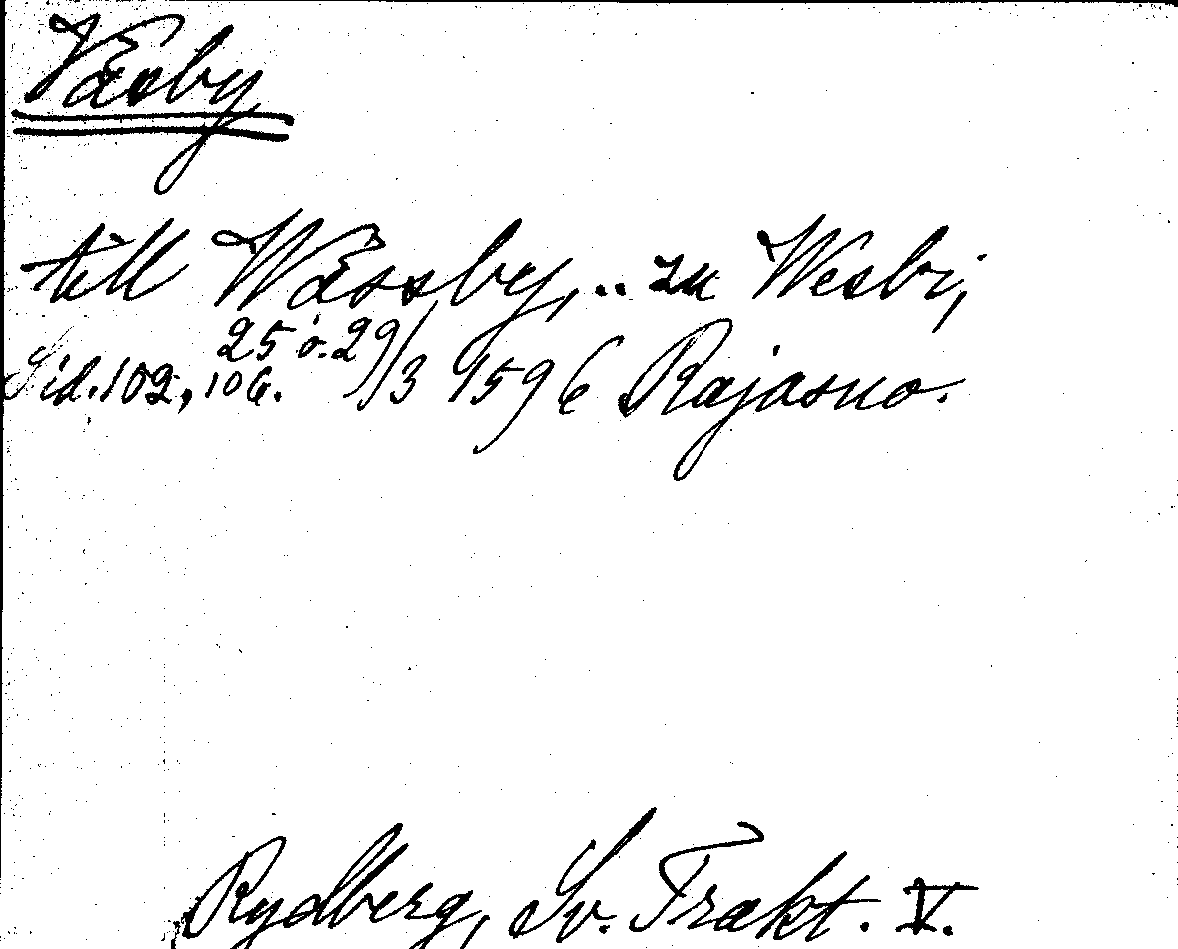 Væsby
till Wæssby, .. zu Wesbi,
25 o. 29/3 1596 Rajasuo.
Sid. 102, 106.
Rydberg, Sv. Trakt. V.